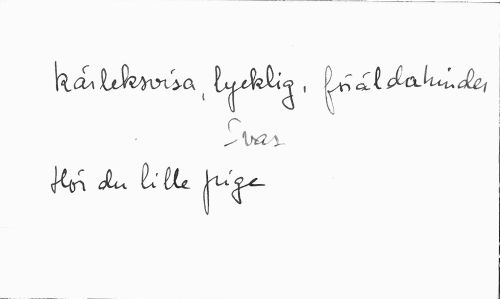 kärleksvisa, lycklig, föräldahinder
svar
Hör du lille pige